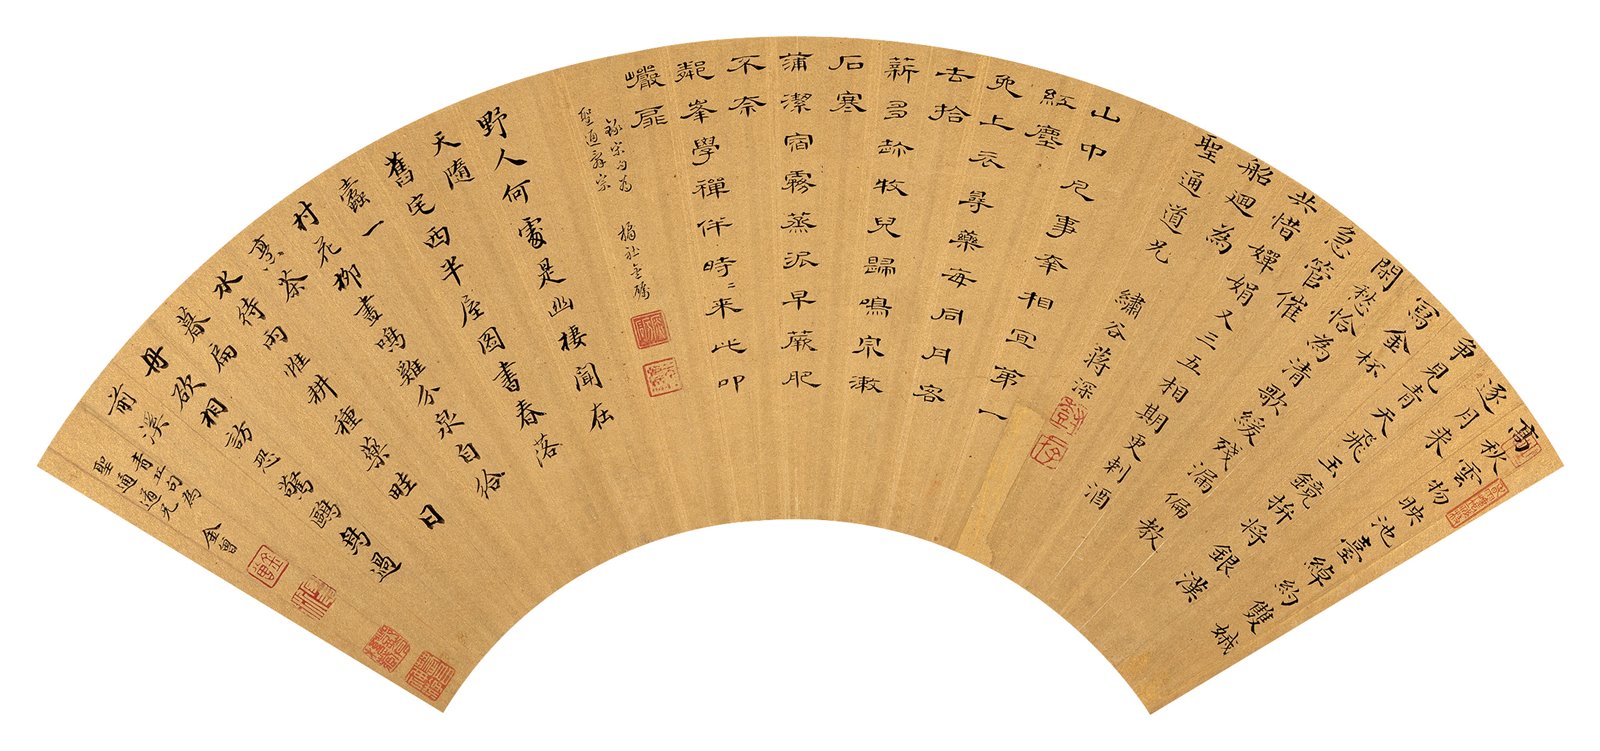 高秋雲物映池臺綽約雙娥
逐月来
爭見青天飛玉鏡拚将銀漢
寫金杯
閑愁恰為清歌緩殘漏偏教
急管催
共惜嬋娟又三五相期更刺酒
船迴為
聖通道兄 繡谷蔣深
山中凡事率相宜第一
紅塵
免上衣尋藥每同月客
去拾
薪多趁牧兒歸鳴泉漱
石寒
蒲潔宿霧蒸泥早蕨肥
不奈
鄰峯學禪伴時〻來此叩
巖扉
宗句為
聖通 橘社金礪
野人何處是幽棲聞在
天隨
舊宅西半屋圖書春落
蠹一
村花柳晝鳴雞分泉自給
烹茶
水待雨惟耕種藥畦日
暮扁
舟欲相訪恐驚鷗鳧過
前溪
青丘句為
聖通道兄 金曾